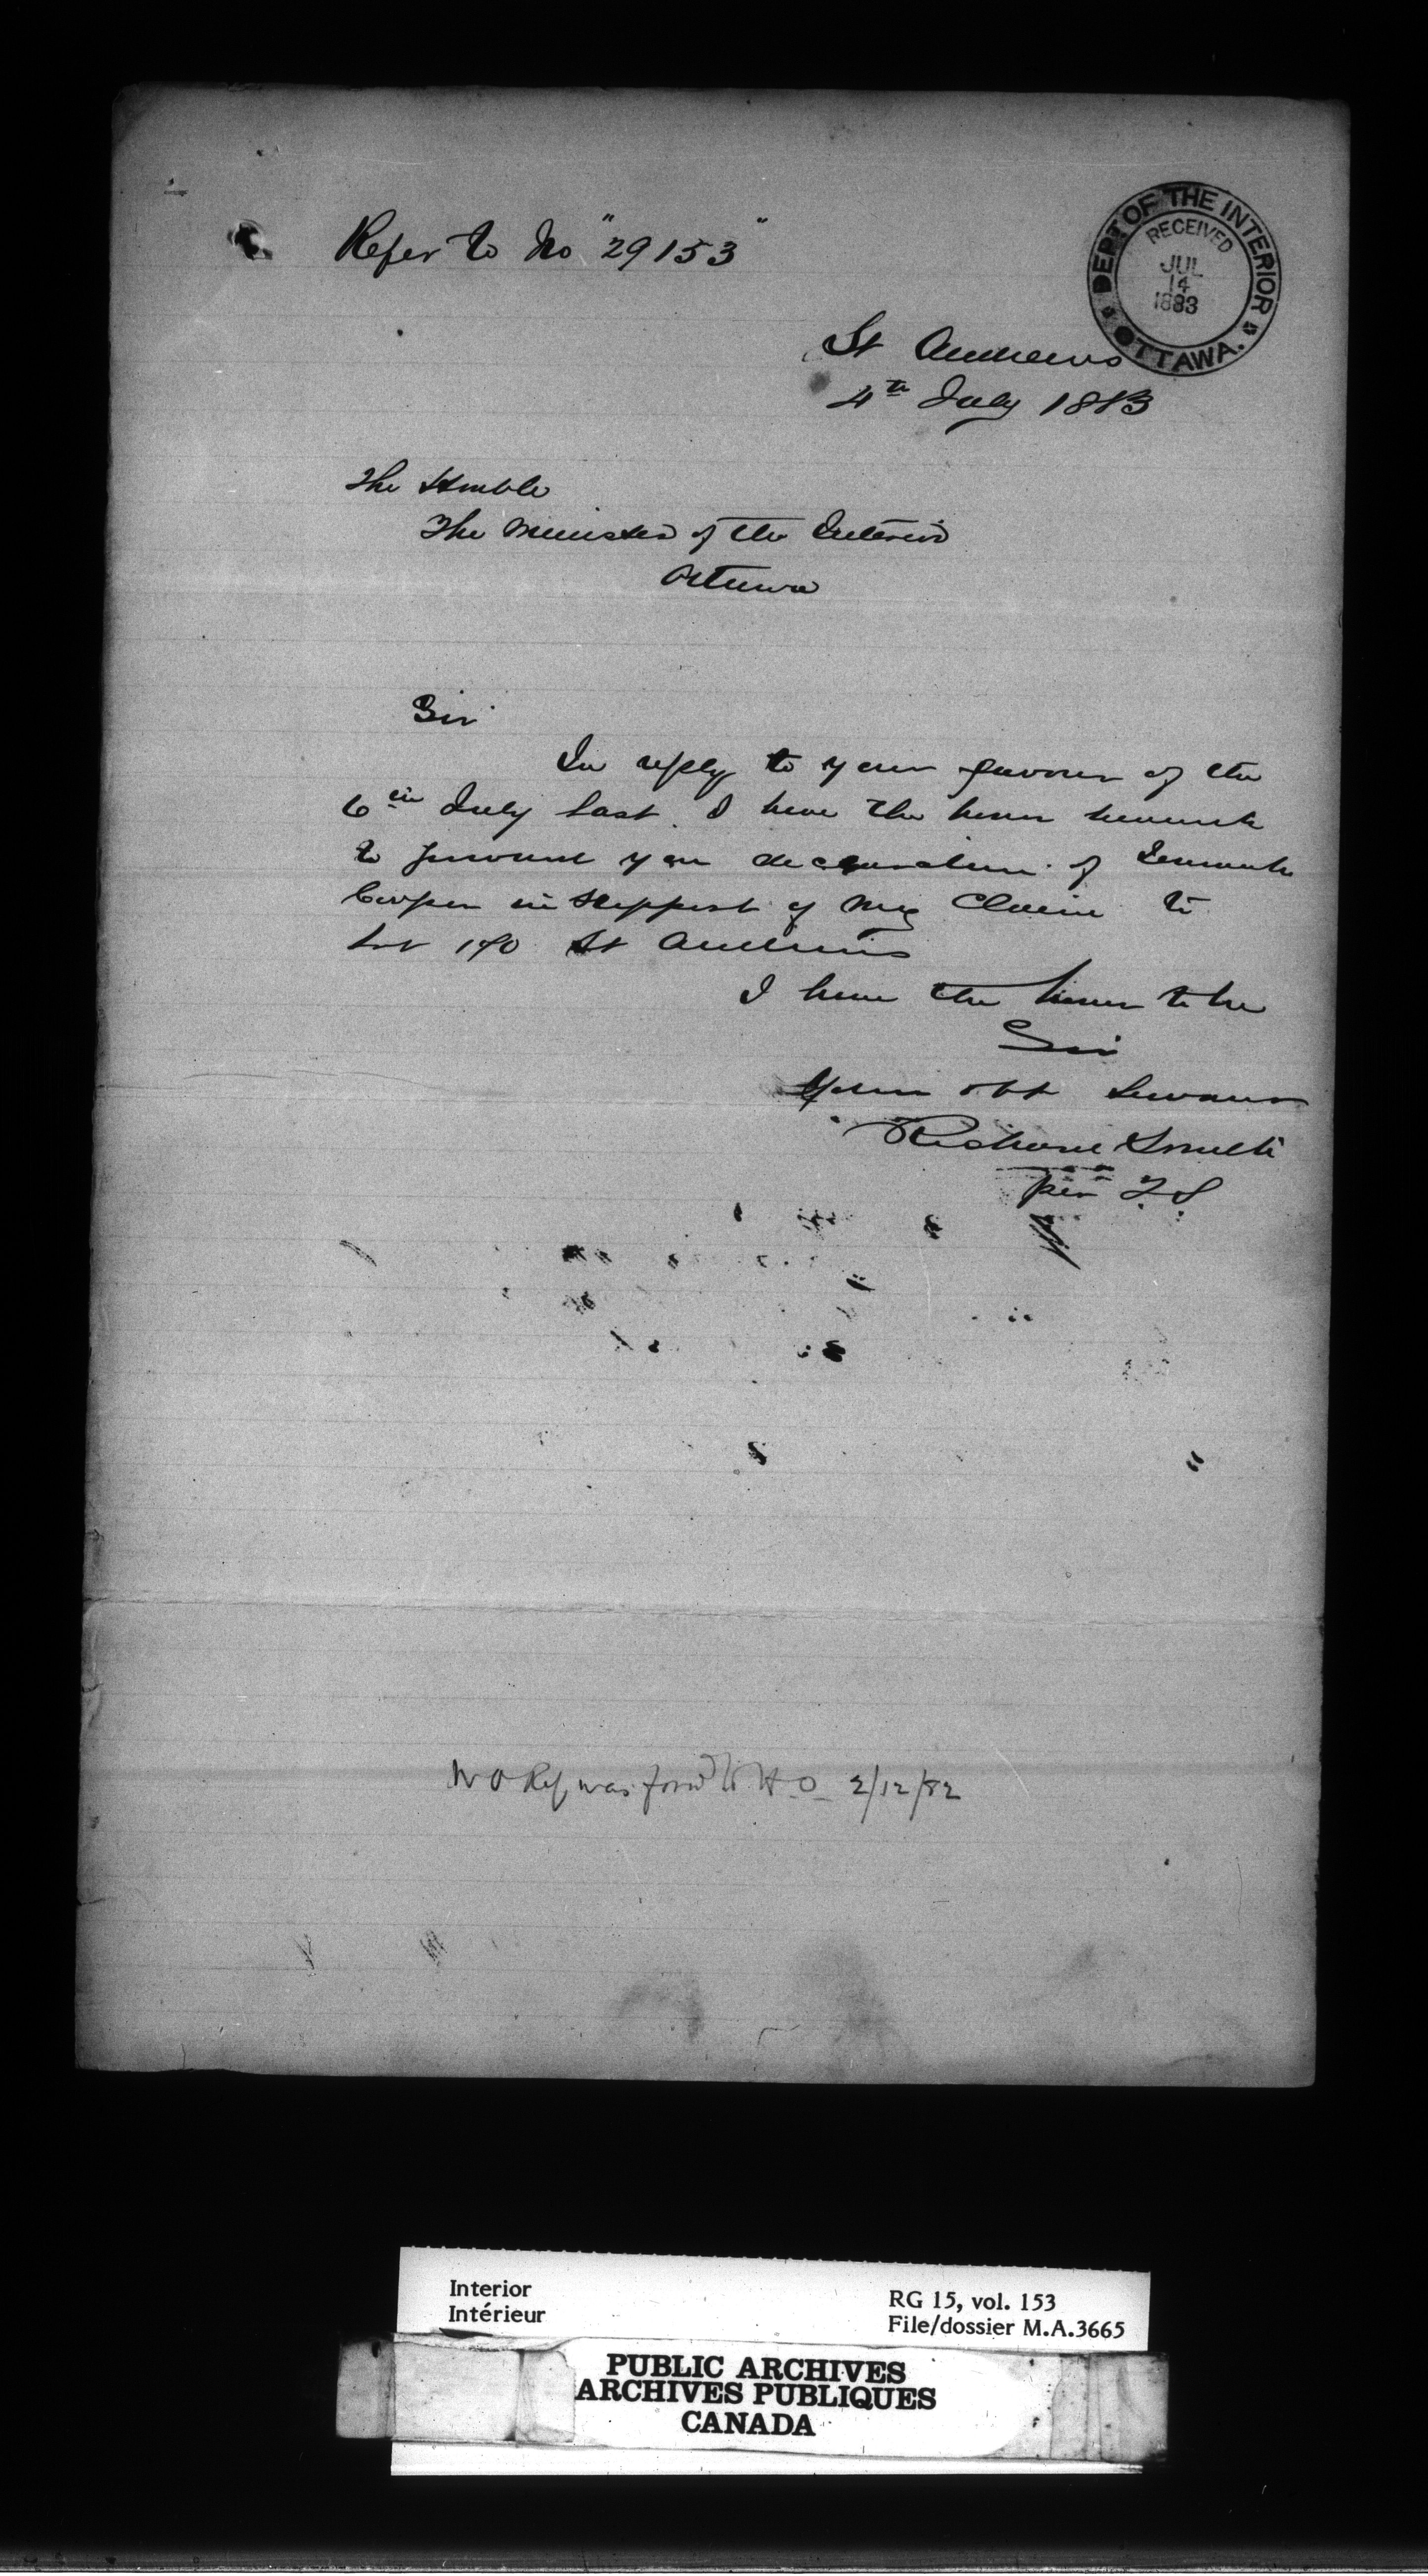 Refer to No "29153"
DEPT. OF THE INTERIOR
OTTAWA.
RECEIVED
JUL
14
1883
St Andrews
4th July 1883
The Honble
The Minister of the Interior
Ottawa
Sir
In reply to your favour of the
6th July last I have the honor herewith
to forward you declaration of
Cooper in support of my Claim to
Lot 170 St Andrews
I have the honor to be
Sir
Your obt Servant
Richard Smith
per
was forwd to H.O. 2/12/82
Interior
Intérieur
RG 15, vol. 153
File/dossier M.A.3665
PUBLIC ARCHIVES
ARCHIVES PUBLIQUES
CANADA